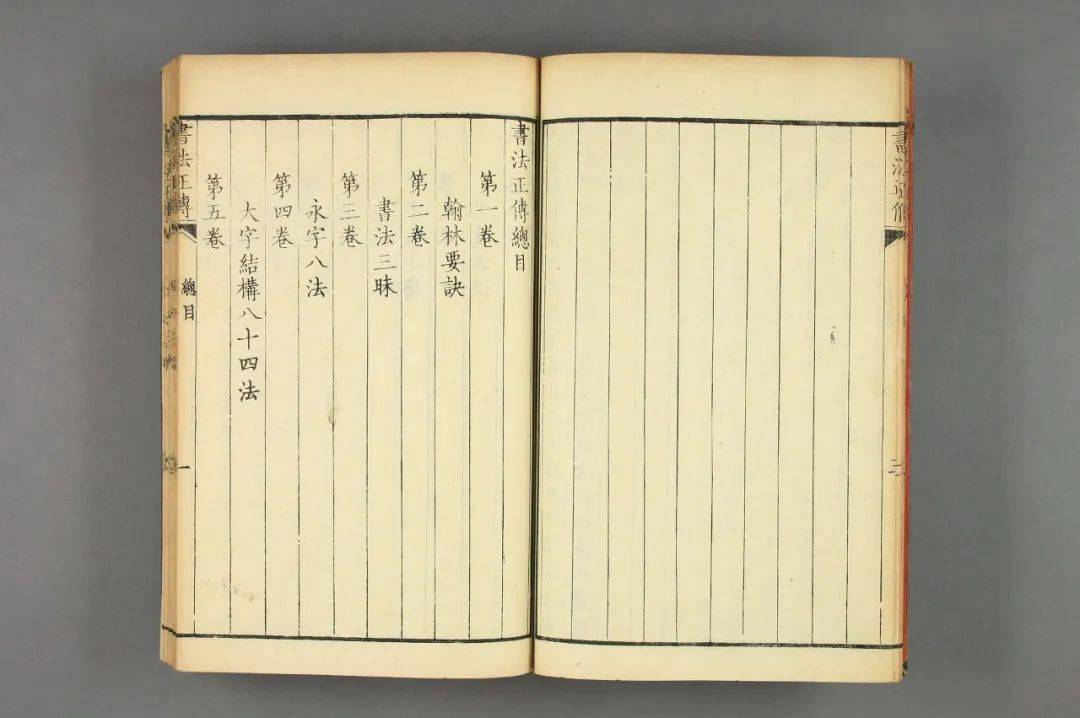 書法正傳
二
書法正傳總目
第一卷
翰林要訣
第二卷
書法三昧
第三卷
永字八法
第四卷
大字結構八十四法
第五卷
書法正傳
總目
一